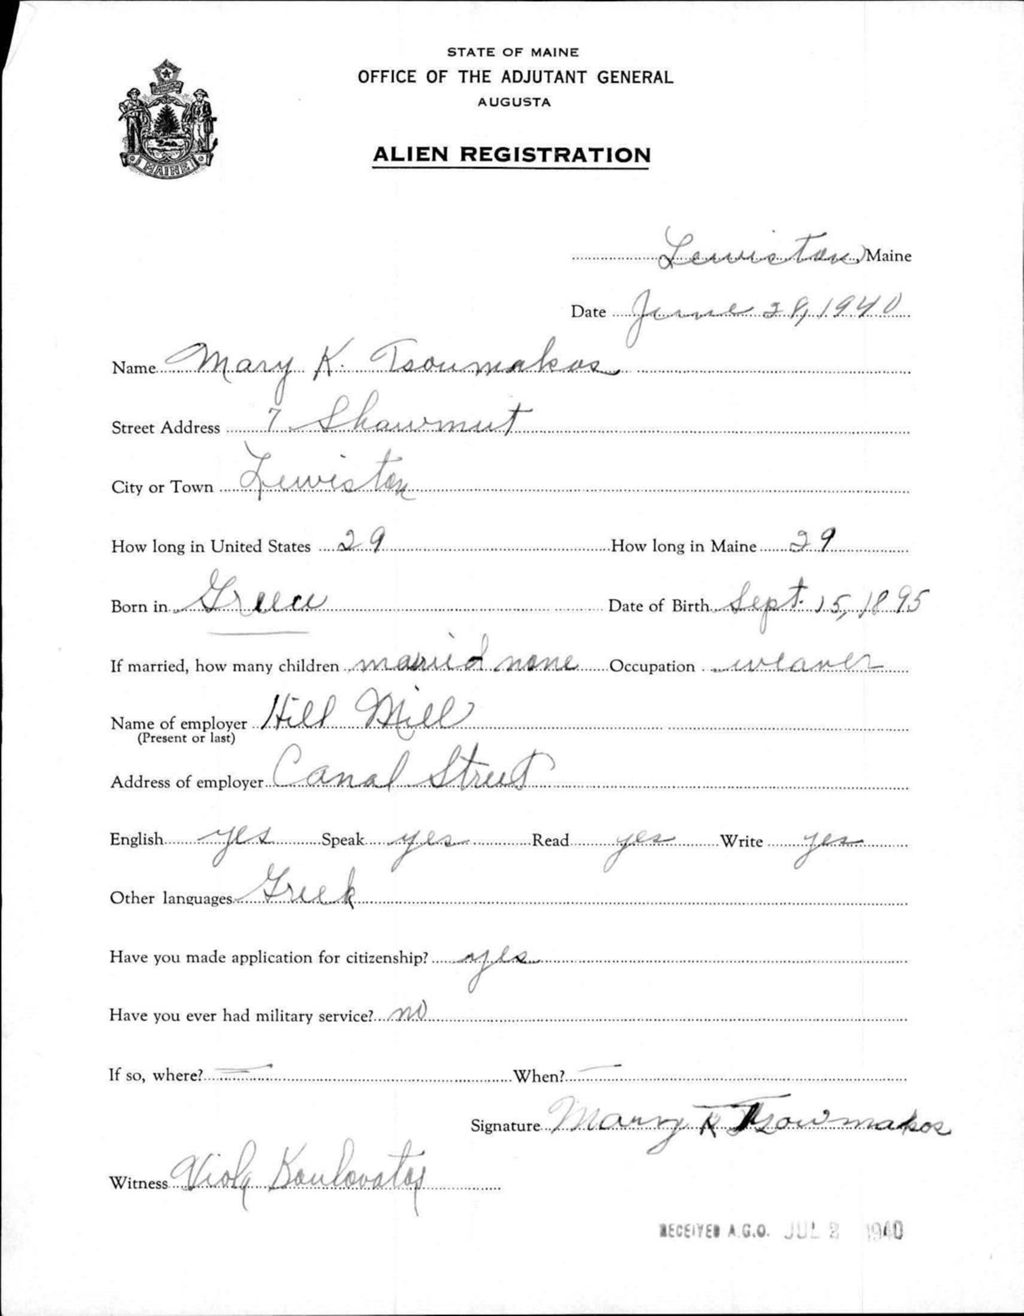 STATE OF MAINE
OFFICE OF THE ADJUTANT GENERAL
AUGUSTA
ALIEN REGISTRATION
MAINE
Lewiston, Maine
Date June 28, 1940
Name Mary K. Tsoumakos
Street Address 7 Shawmut
City or Town Lewiston
How long in United States 29 How long in Maine 29
Born in Greece Date of Birth Sept. 15, 1895
If married, how many children married none Occupation weaver
Name of employer Hill Mill
(Present or last)
Address of employer Canal Street
English yes Speak yes Read yes Write yes
Other languages Greek
Have you made application for citizenship? yes
Have you ever had military service? no
If so, where? — When? —
Signature Mary K Tsowmakos
Witness Viola Koulovatos
RECEIVED A.G.O. JUL 2 1940